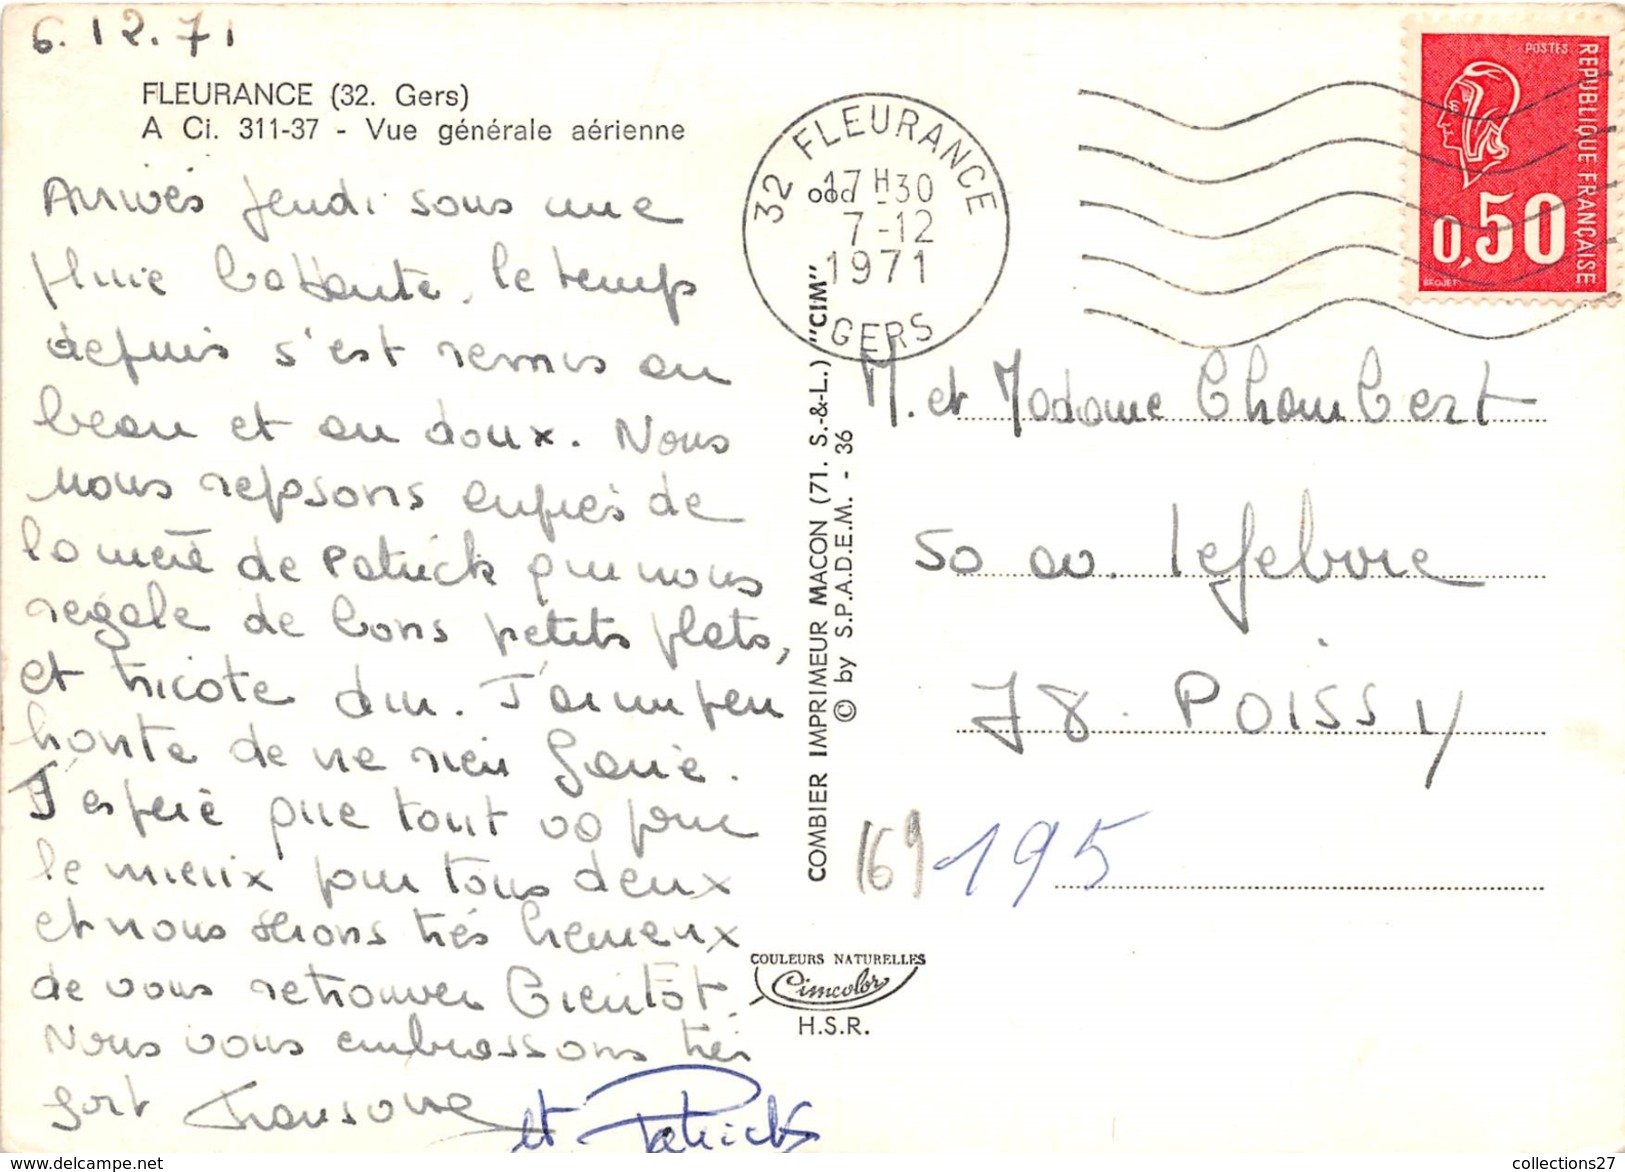 6.12.71
FLEURANCE (32. Gers)
A Ci. 311-37 - Vue générale aérienne
Arrivés jeudi sous une
pluie battante, le temps
depuis s'est remis au
beau et au doux. Nous
nous reposons auprès de
la mère de Patrick qui nous
régale de bons petits plats,
et tricote dur. J'ai un peu
honte de ne rien faire.
J'espère que tout va pour
le mieux pour tous deux
et nous serions très heureux
de vous retrouver bientôt.
Nous vous embrassons très
fort
et Patrick
COMBIER IMPRIMEUR MACON (71. S.-&-L.) "CIM"
© by S.P.A.D.E.M. - 36
32 FLEURANCE
17 H 30
7-12
1971
GERS
POSTES
REPUBLIQUE FRANÇAISE
0,50
BEQUET
M. et Madame Chambert
50 av. Lefebvre
78. POISSY
169 195
COULEURS NATURELLES
Cimcolor
H.S.R.
collections27